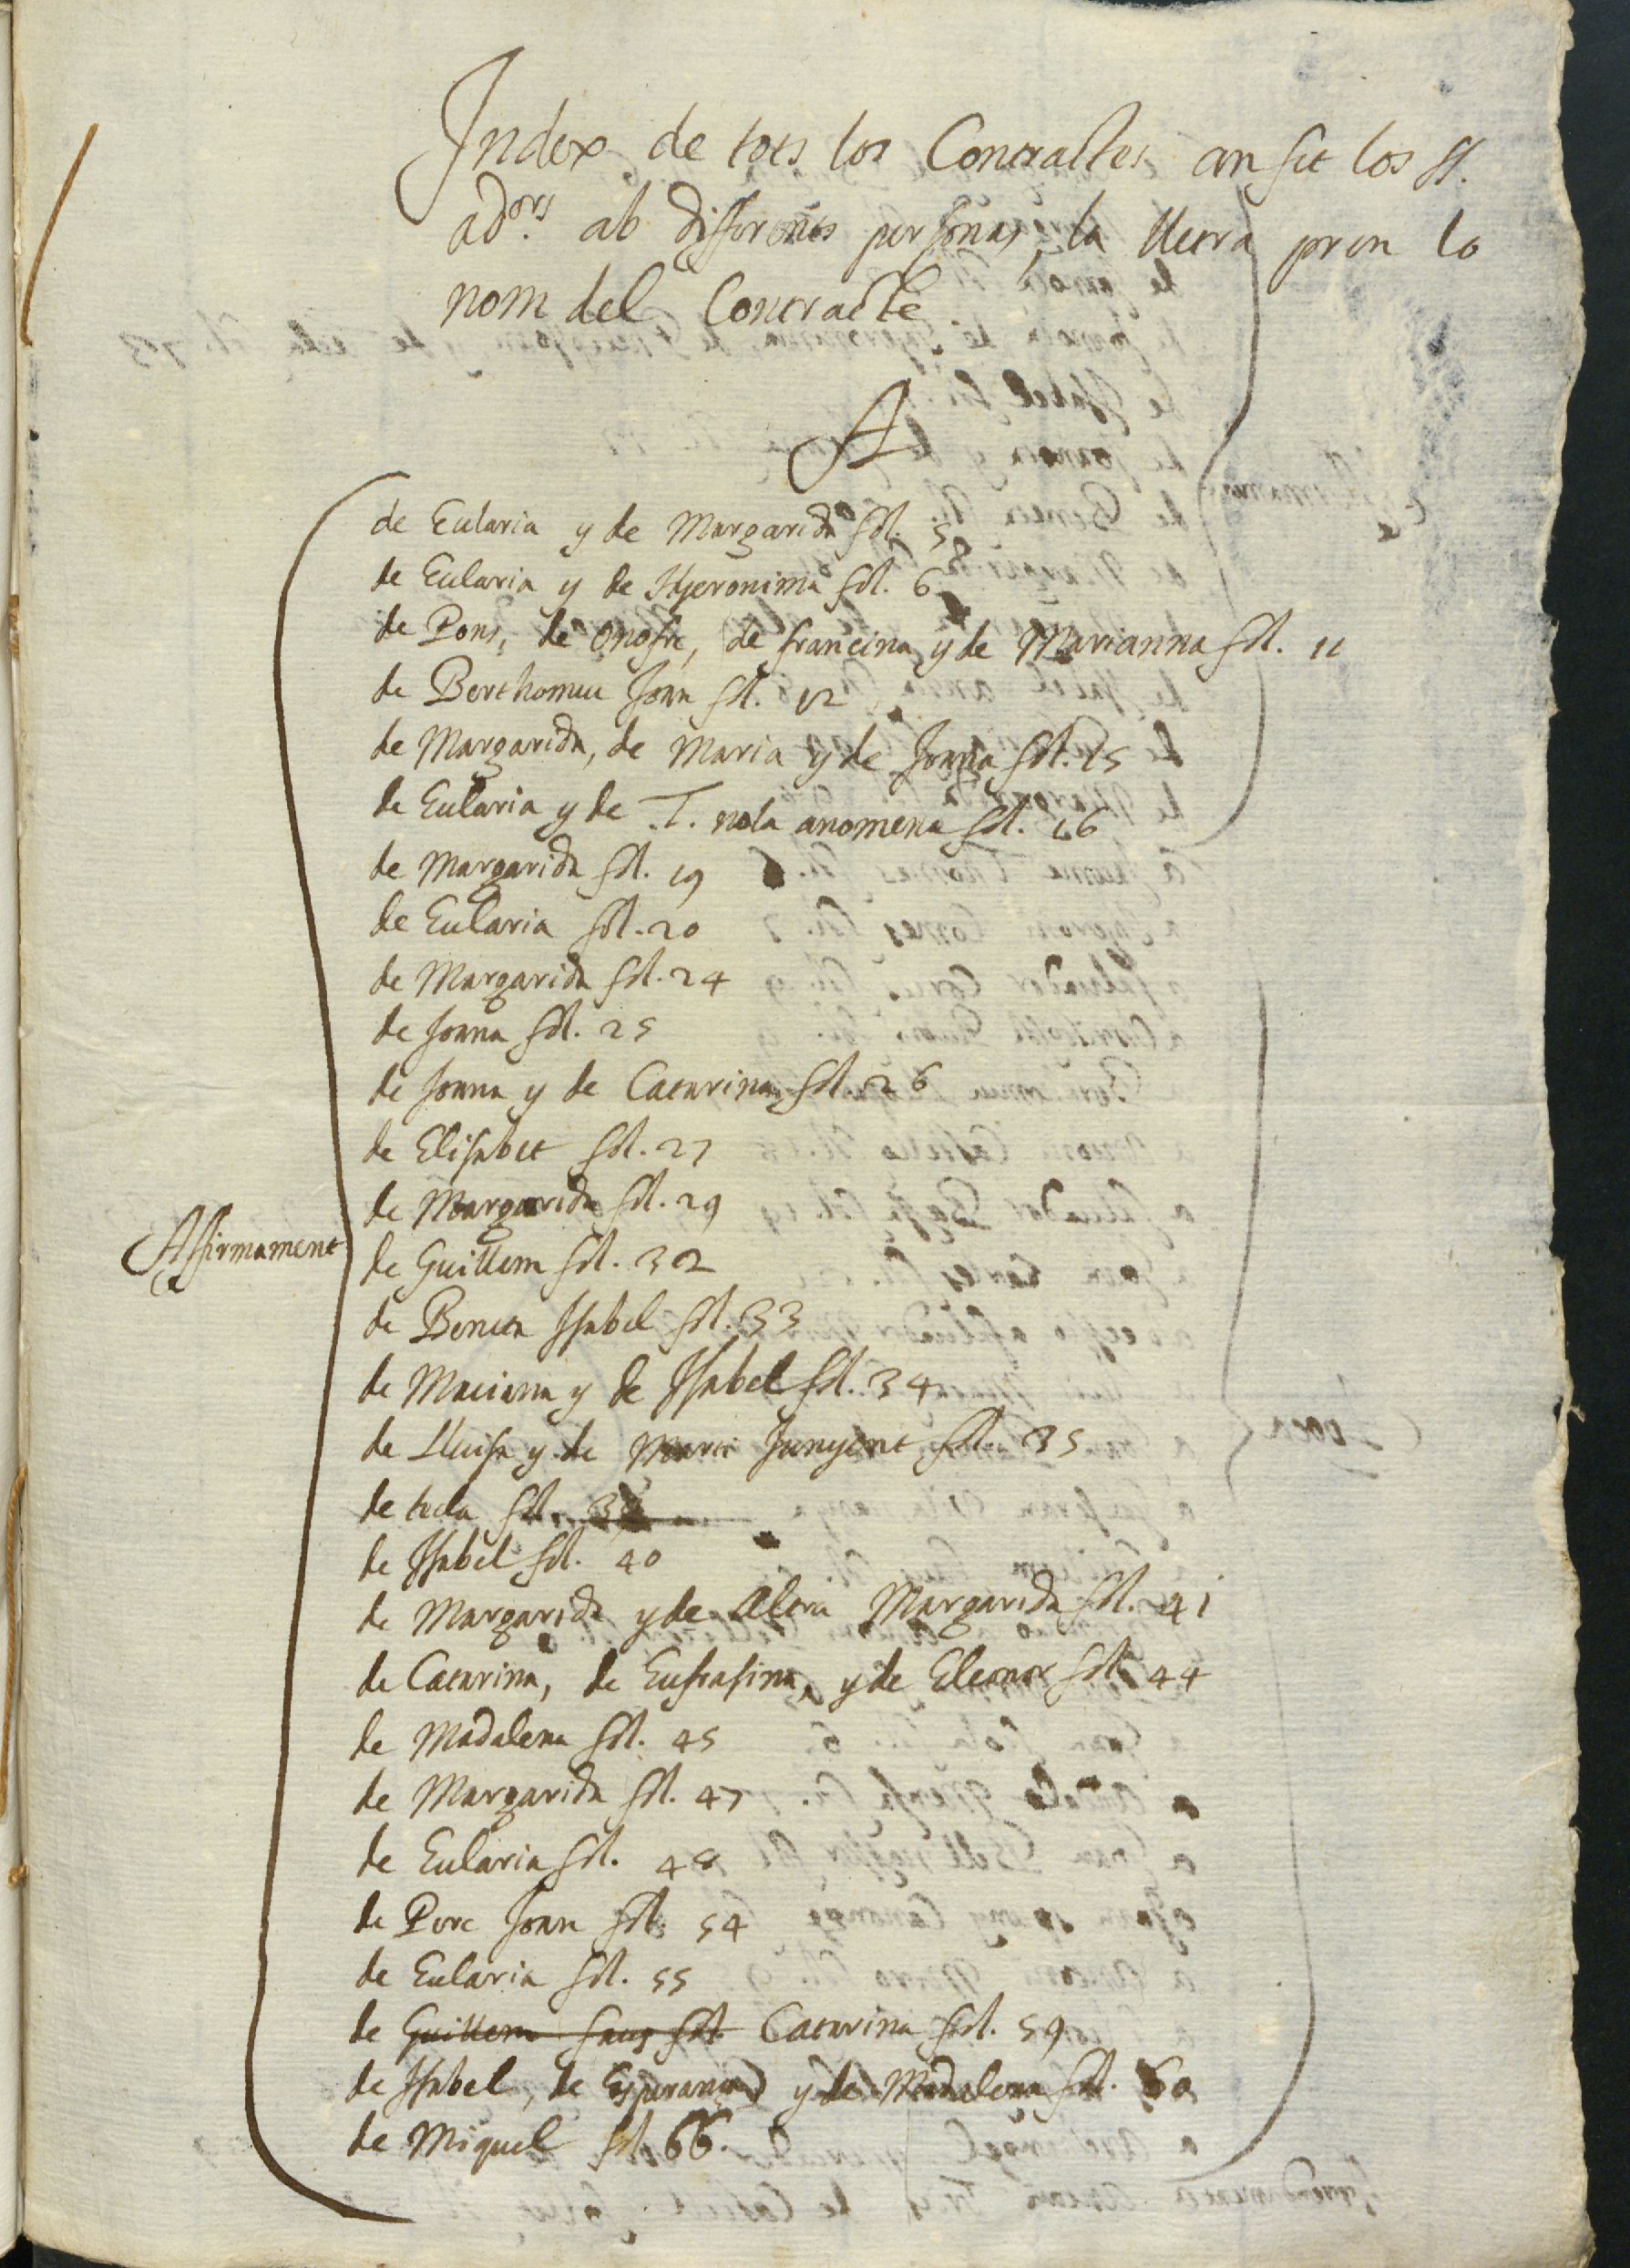 Index de tots los Contractes an fet los SS.
adors. ab differents personas, la lletra pren lo
nom del Contracte
A
de Eularia y de Margarida fol. 5
de Eularia y de Hyeronima fol. 6
de Pons, de Onofre, de francina y de Marianna fol. 11
de Berthomeu Joan fol. 12
de Margarida, de Maria y de Joana fol. 15
de Eularia y de .T. nola anomena fol. 16
de Margarida fol. 19
de Eularia fol. 20
de Margarida fol. 24
de Joana fol. 25
de Joana y de Catarina fol. 26
de Elisabet fol. 27
de Margarida fol. 29
Affirmament
de Guillem fol. 32
de Beneta Isabel fol. 33
de Maciana y de Isabel fol. 34
de Lluisa y de Maria Junyent fol. 35
de tecla fol.
de Isabel fol. 40
de Margarida y de altra Margarida fol. 41
de Catarina, de Eufrasina, y de Eleonor fol. 44
de Madalena fol. 45
de Margarida fol. 47
de Eularia fol. 48
de Pere Joan fol. 54
de Eularia fol. 55
de Guillem saug fol. Catarina fol. 59
de Isabel, de Esperança y de Madalena fol. 60
de Miquel fol. 66.